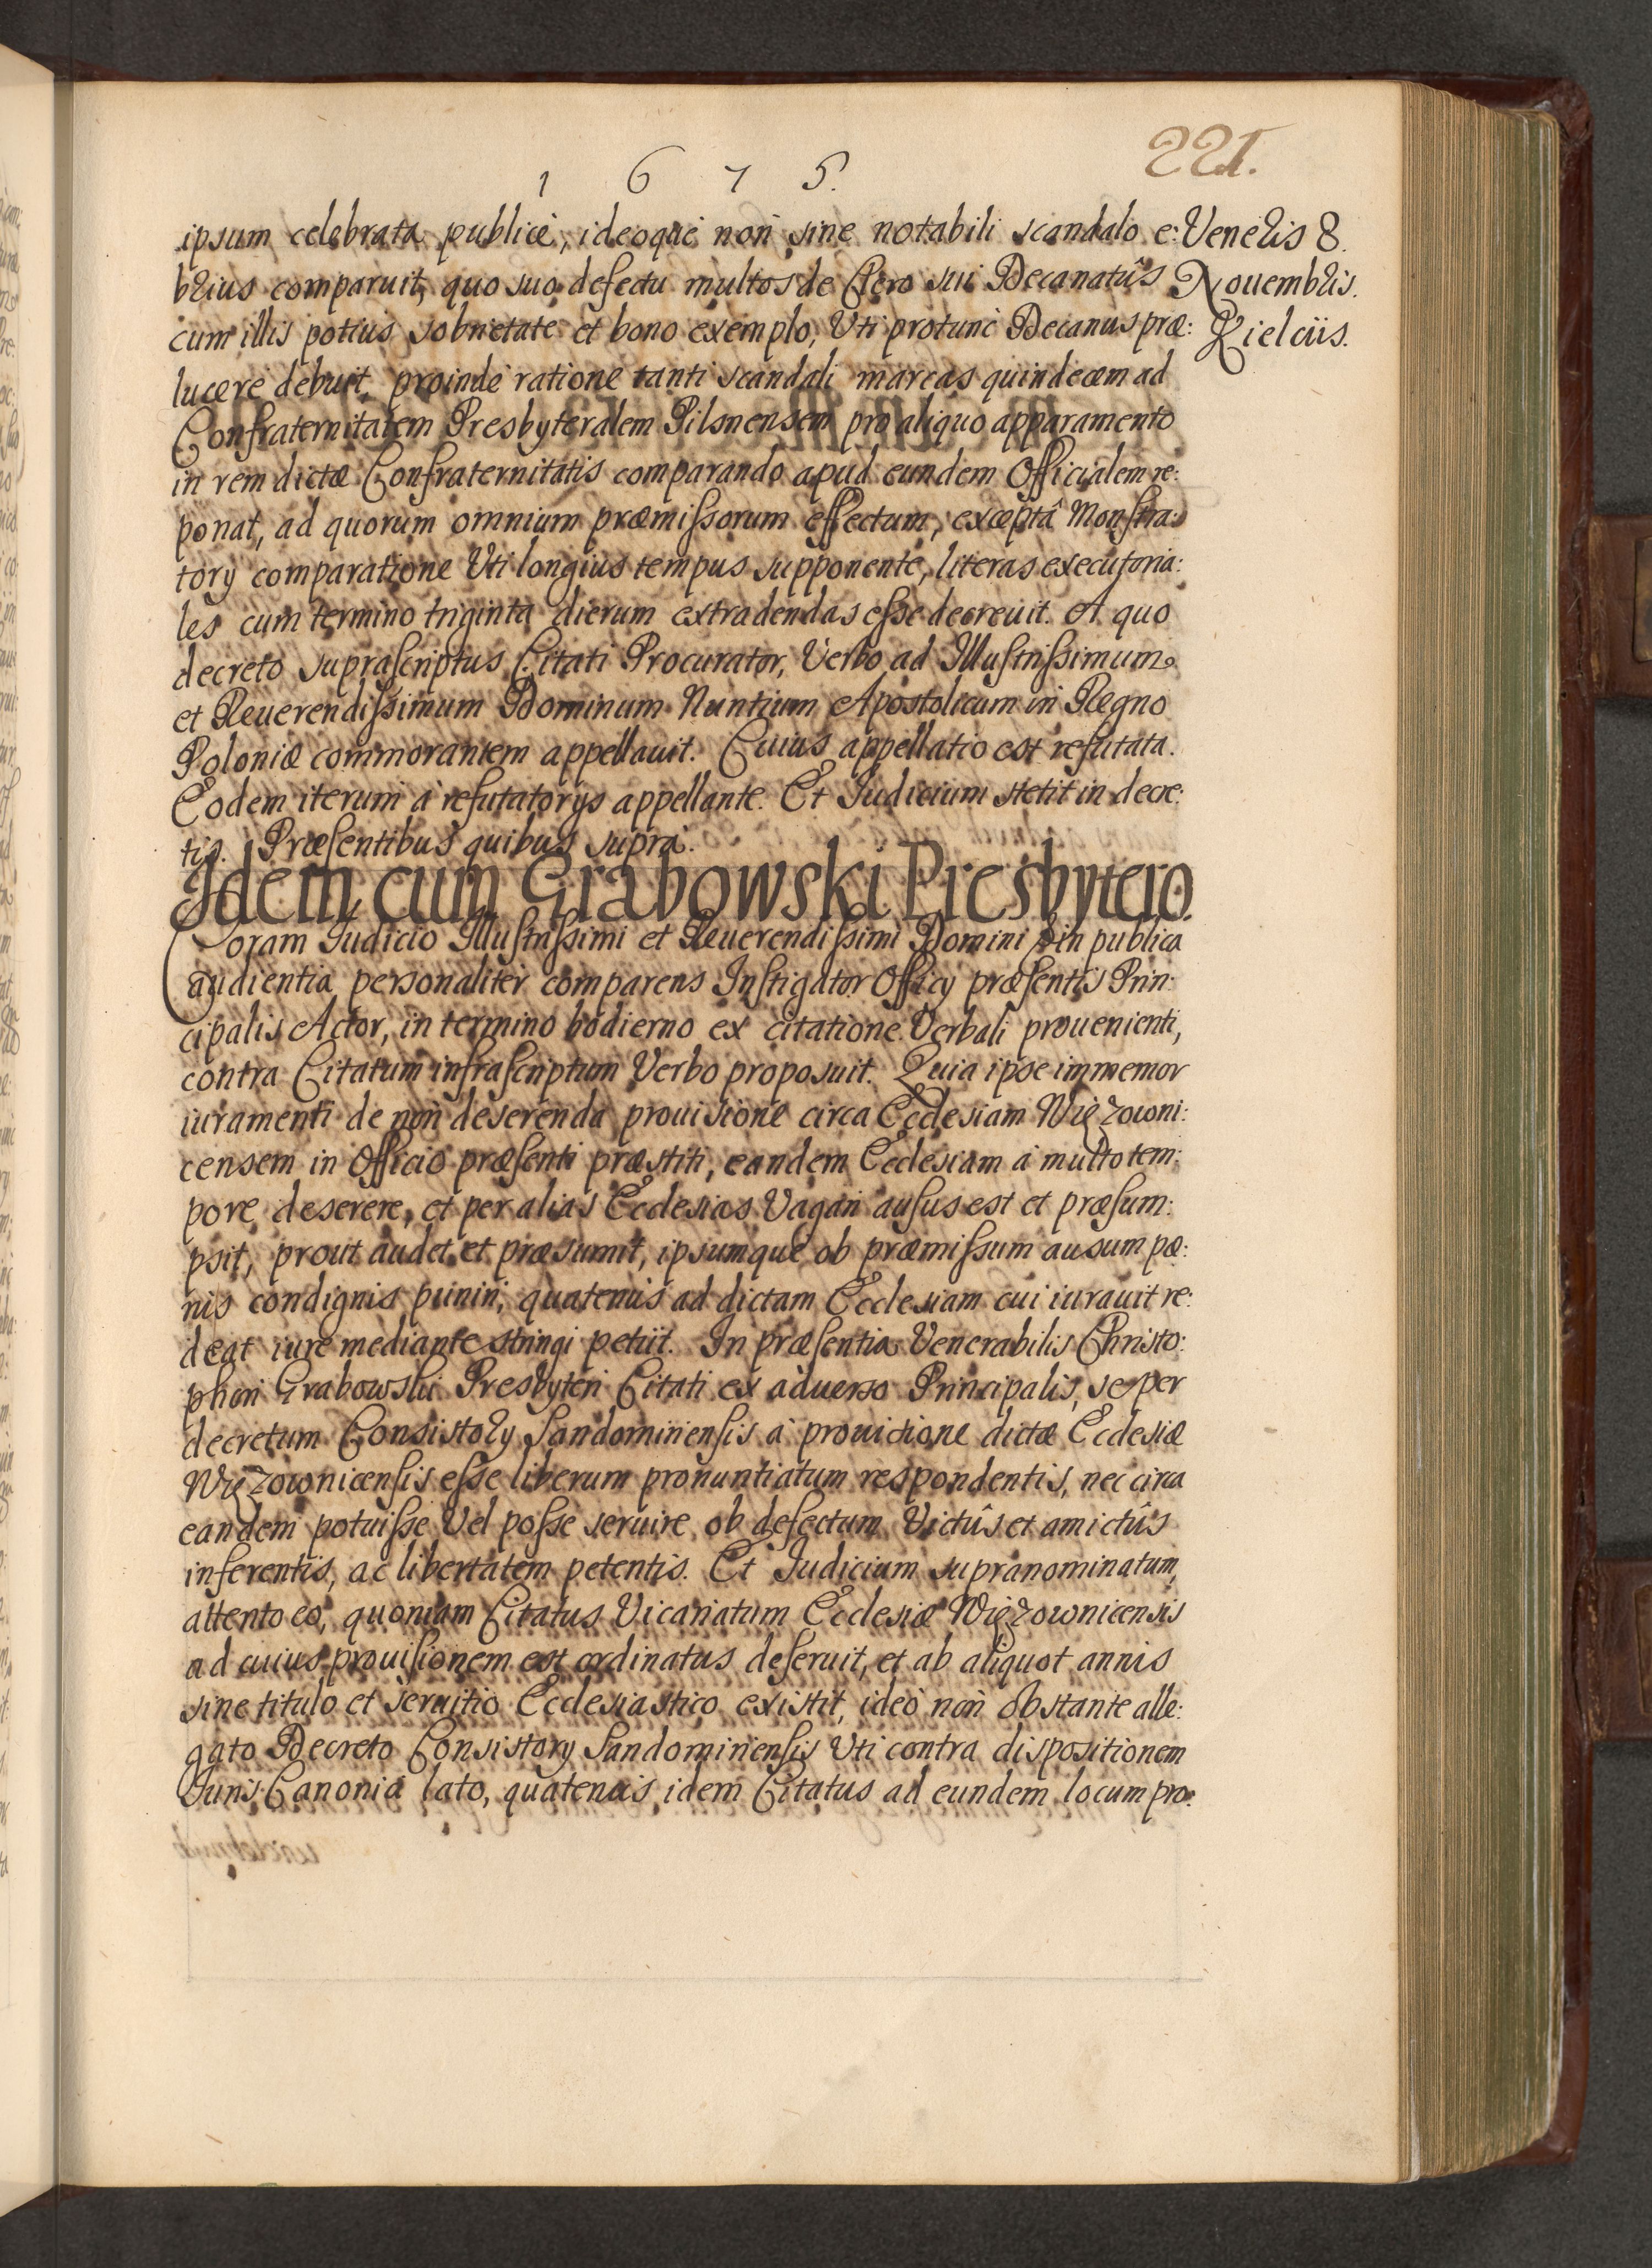 221.
1 6 7 5.
ipsum celebrata publicè, ideoque non sine notabili scandalo e:
Veneris 8.
brius comparuit, quo suo defectu multos de Clero sui Decanatûs
Nouembris.
cum illis potius sobrietate et bono exemplo, Vti protunc Decanus præ:
Kielciis.
lucere debuit, proinde ratione tanti scandali marcas quindecem ad
Confraternitatem Presbyteralem Pilsnensem pro aliquo apparamento
in rem dictæ Confraternitatis comparando apud eundem Officialem re:
ponat, ad quorum omnium præmissorum effectum, exceptâ Monstra:
tory comparatione Vti longius tempus supponente, literas executoria:
les cum termino triginta dierum extradendas esse decreuit. A quo
decreto suprascriptus Citati Procurator, Verbo ad Illustrissimum
et Reuerendissimum Dominum Nuntium Apostolicum in Regno
Poloniæ commorantem appellauit. Cuius appellatio est refutata.
Eodem iterum à refutatorys appellante. Et Iudicium stetit in decre:
tis. Præsentibus quibus supra.
Idem cum Grabowski Presbytero.
Coram Iudicio Illustrissimi et Reuerendissimi Domini in publica
audientia personaliter comparens Instigator Officy præsentis Prin:
cipalis Actor, in termino hodierno ex citatione Verbali prouenienti,
contra Citatum infrascriptum Verbo proposuit. Quia ipse immemor
iuramenti de non deserenda prouisione circa Ecclesiam Więzowni:
censem in Officio præsenti præstiti, eandem Ecclesiam à multo tem:
pore deserere, et per alias Ecclesias Vagari ausus est et præsum:
psit, prout audet et præsumit, ipsumque ob præmissum ausum pæ:
nis condignis puniri, quatenus ad dictam Ecclesiam cui iurauit re:
deat iure mediante stringi petiit. In præsentia Venerabilis Christo:
phori Grabowski Presbyteri Citati ex aduerso Principalis, se per
decretum Consistory Sandomiriensis à prouisione dictæ Ecclesiæ
Więzownicensis esse liberum pronuntiatum respondentis, nec circa
eandem potuisse Vel posse seruire ob defectum Victûs et amictûs
inferentis, ac libertatem petentis. Et Iudicium supranominatum,
attento eo, quoniam Citatus Vicariatum Ecclesiæ Więzownicensis
ad cuius prouisionem est ordinatus deseruit, et ab aliquot annis
sine titulo et seruitio Ecclesiastico existit, ideò non obstante alle:
gato Decreto Consistory Sandomiriensis Vti contra dispositionem
Iuris Canonici lato, quatenus idem Citatus ad eundem locum pro: